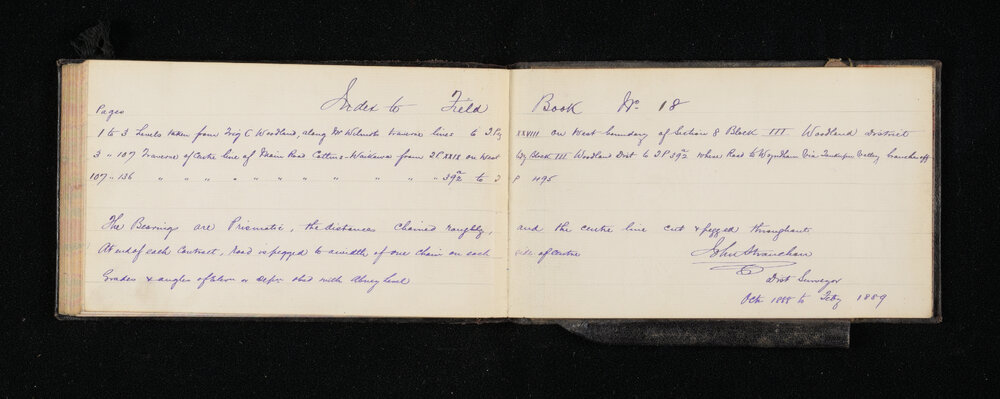 Index to Field Book No 18
Pages
1 to 3 Levels taken from Trig C Woodland, along Mr Wilmot's traverse lines to T Peg XXVIII on West boundary of Section 8 Block III Woodland District
3 " 107 Traverse of Centre line of Main Road Catlins-Waikawa from TP XXIX on West Bdy Block III Woodland Dist to TP 392 where Road to Wyndham Via Valley branches off
107 " 136 " " " " " " " " " " " " 392 to T P 495
The Bearings are Prismatic, the distances chained roughly, and the centre line cut & pegged throughout
At end of each Contract, Road is pegged to a width of one Chain on each side of centre
Grades & angles of Elevn or Depn obsd with Abney Level
John Strauchon
Dist Surveyor
Oct 1888 to Feby 1889